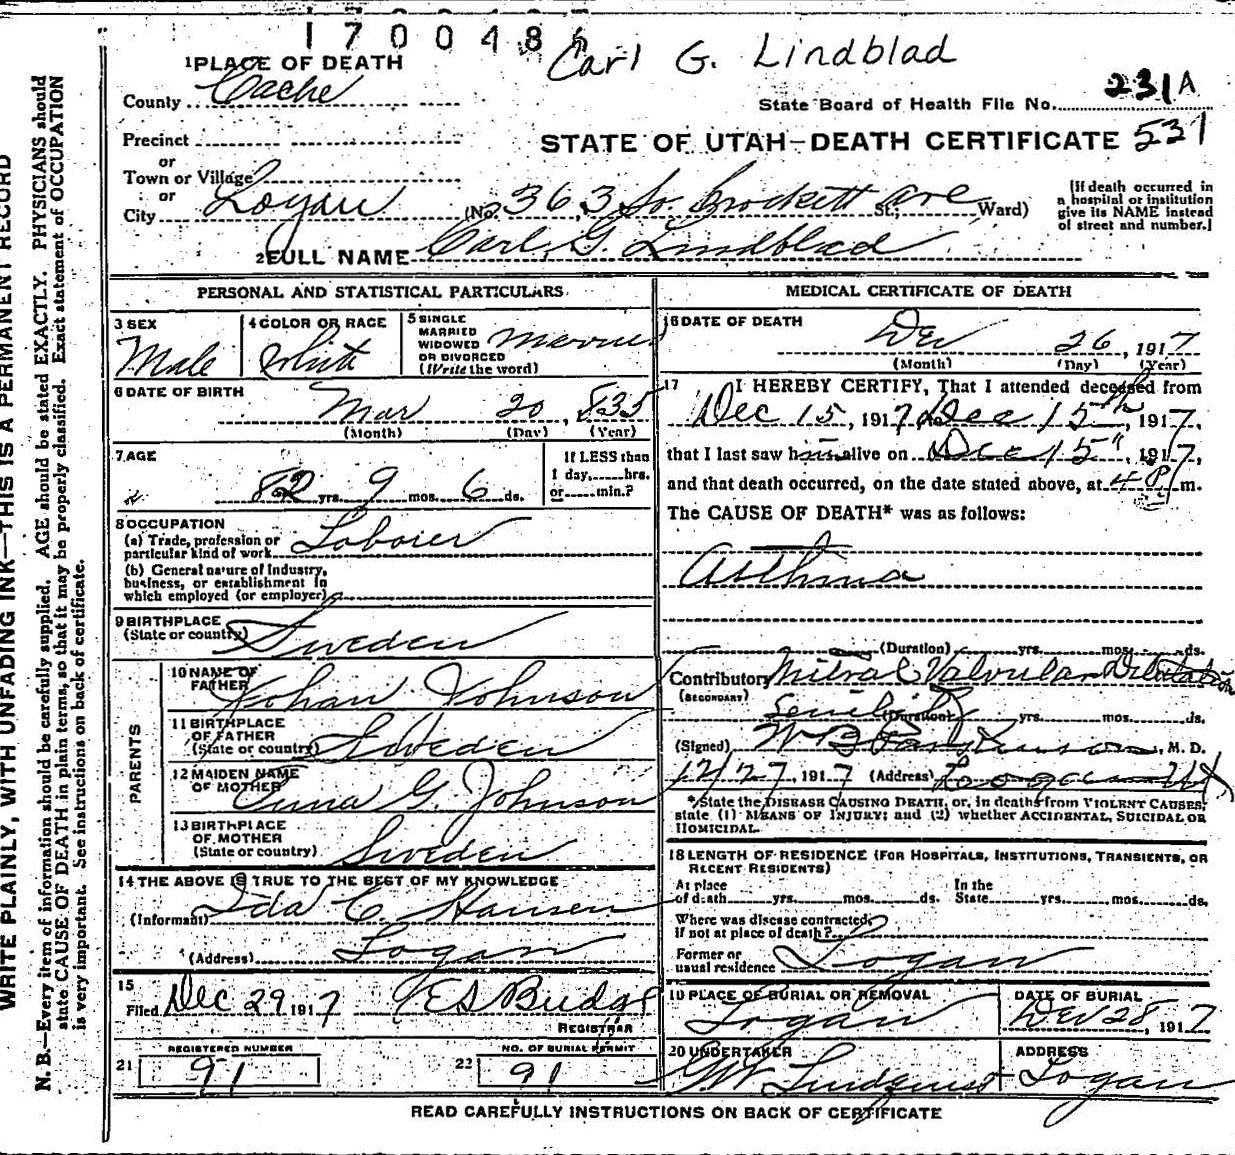 1700486
Carl G. Lindblad
1 PLACE OF DEATH
County Cache
State Board of Health File No. 231A
Precinct
STATE OF UTAH—DEATH CERTIFICATE 531
or
Town or Village
or
City Logan (No. 363 So. Brockett St.; ave Ward)
[If death occurred in a hospital or institution give its NAME instead of street and number.]
2 FULL NAME Carl G. Lindblad
PERSONAL AND STATISTICAL PARTICULARS
3 SEX
Male
4 COLOR OR RACE
White
5 SINGLE
MARRIED
WIDOWED
OR DIVORCED
(Write the word)
Married
6 DATE OF BIRTH
Mar 20, 1835
(Month) (Day) (Year)
7 AGE
82 yrs. 9 mos. 6 ds.
If LESS than
1 day,......hrs.
or......min.?
8 OCCUPATION
(a) Trade, profession or
particular kind of work Laborer
(b) General nature of Industry,
business, or establishment in
which employed (or employer)
9 BIRTHPLACE
(State or country) Sweden
PARENTS
10 NAME OF
FATHER Johan Johnson
11 BIRTHPLACE
OF FATHER
(State or country) Sweden
12 MAIDEN NAME
OF MOTHER Anna G. Johnson
13 BIRTHPLACE
OF MOTHER
(State or country) Sweden
14 THE ABOVE IS TRUE TO THE BEST OF MY KNOWLEDGE
(Informant) Ida C. Hansen
(Address) Logan
15
Filed Dec 29 1917 E S Budge
REGISTRAR
21 REGISTERED NUMBER
91
22 NO. OF BURIAL PERMIT
91
MEDICAL CERTIFICATE OF DEATH
16 DATE OF DEATH
Dec 26, 1917
(Month) (Day) (Year)
17 I HEREBY CERTIFY, That I attended deceased from
Dec 15, 1917, to Dec 15th, 1917,
that I last saw him alive on Dec 15", 1917,
and that death occurred, on the date stated above, at 4 P m.
The CAUSE OF DEATH* was as follows:
Asthma
(Duration) yrs. mos. ds.
Contributory Mitral Valvular Dilatation
(SECONDARY)
Senility
(Duration) yrs. mos. ds.
(Signed) W B Parkinson, M. D.
12/27, 1917 (Address) Logan Ut
* State the DISEASE CAUSING DEATH, or, in deaths from VIOLENT CAUSES,
state (1) MEANS OF INJURY; and (2) whether ACCIDENTAL, SUICIDAL OR
HOMICIDAL.
18 LENGTH OF RESIDENCE (FOR HOSPITALS, INSTITUTIONS, TRANSIENTS, OR
RECENT RESIDENTS)
At place
of death......yrs......mos......ds.
In the
State......yrs......mos......ds.
Where was disease contracted,
if not at place of death?
Former or
usual residence Logan
19 PLACE OF BURIAL OR REMOVAL
Logan
DATE OF BURIAL
Dec 28, 1917
20 UNDERTAKER
G W Lindquist
ADDRESS
Logan
READ CAREFULLY INSTRUCTIONS ON BACK OF CERTIFICATE
WRITE PLAINLY, WITH UNFADING INK—THIS IS A PERMANENT RECORD
N. B.—Every item of information should be carefully supplied. AGE should be stated EXACTLY. PHYSICIANS should
state CAUSE OF DEATH in plain terms, so that it may be properly classified. Exact statement of OCCUPATION
is very important. See instructions on back of certificate.